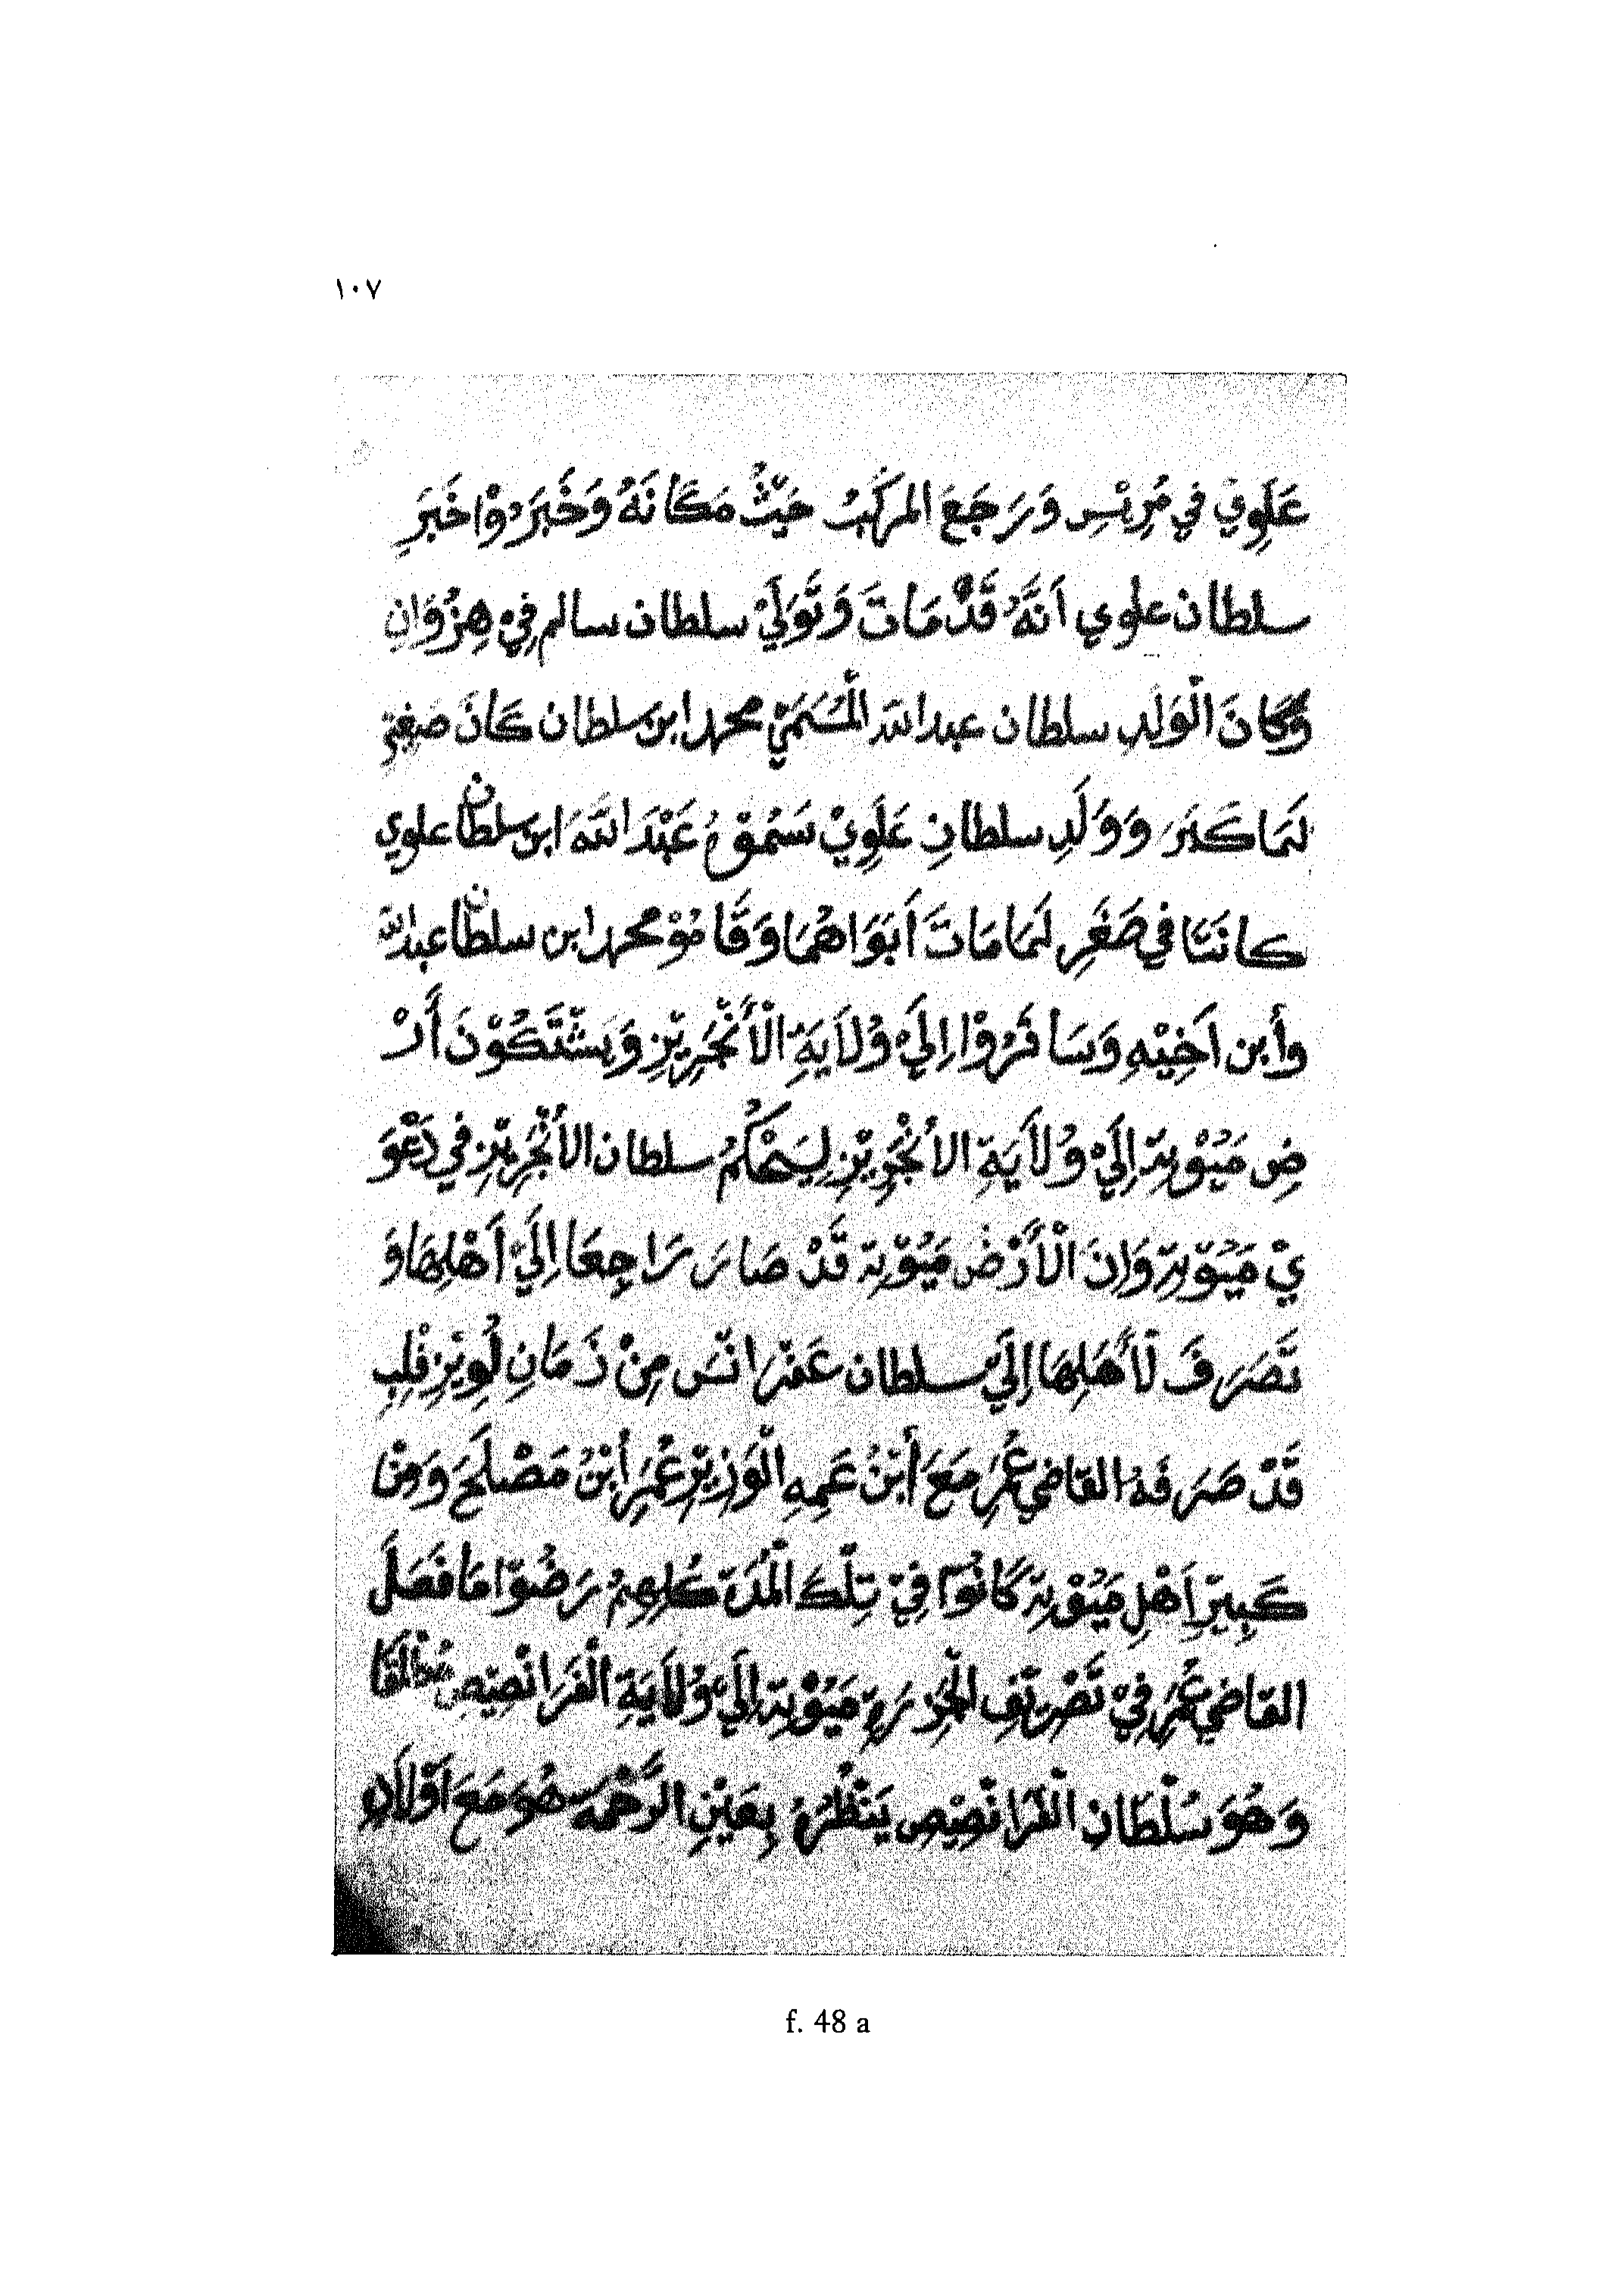 ١٠٧
عَلَوِي فِي مُرِيْسِ وَرَجَعَ المَركَبُ حَيْثُ مَكَانَهُ وَخَبَرُوْا خَبَرِ
سلطان علوي اَنَّهُ قَدْ مَاتَ وَتَوَلَيْ سلطان سالم فِيْ هِنْزُوَانِ
وَكَانَ الْوَلَدِ سلطان عبد الله الْمُسَمَيْ محمد ابن سلطان كَانَ صَغِيْرِ
لَمَا كَبَرَ وَوَلَدِ سلطانِ عَلَوِيْ سَمُوْهُ عَبْدَ اللّهَ ابن سلطان علوي
كانَتَا في صَغَرِ لَمَا مَاتَ اَبَوَاهُمَا وَقَامُوْ محمد ابن سلطان عبد الله
وأبن اَخِيْهِ وَسَافَرُوْا اِلَيْ وُلَايَةِ الْأَنْجَرِيْزِ وَيَشْتَكُوْنَ أَرْ
ضِ مَيُوْتِة اِلَيْ وُلَايَةِ الأنْجَرِيْزِ لِيَحْكُمُ سلطان الأنْجَرِيْزِ في دَعْوَ
يْ مَيُوْتِة وَاِنَ الْأَرْضَ مَيُوْتِة قَدْ صَارَ رَاجِعَا اِلَيْ اَهْلِهَا وَ
تَصَرَفَ لَأهَلِهَا اِلَيْ سلطان عَفْرَانْسَ مِنْ زَمَانِ لُوِيْزِ فْلِبِ
قَدْ صَرَفَهُ القاضي عُمَرِ مَعَ أَبْنُ عَمِهِ الْوَزِيْرِ عُمَرِ أبْنُ مَصْلَحَ وَمِنْ
كَبِيْرِ اَهْلِ مَيُوْتِة كَانُوْا فِيْ تِلْكَ الْمُدَة كُلِهِمُ رَضُوْا مَا فَصَلَ
القاضي عُمَرِ فِيْ تَصْرِيْفِ الْجَزِرَةِ مَيُوْتِة اِلَيْ وُلَايَةِ الْفَرَانْصِيْصِ مُطْلَقًا
وَهُوَ سُلْطَانِ الْفَرَانْصِيْصِ يَنْظُرُهُ بِعَيْنِ الرَّحْمَة هُوَ مَعَ اَوْلَادِ
f. 48 a